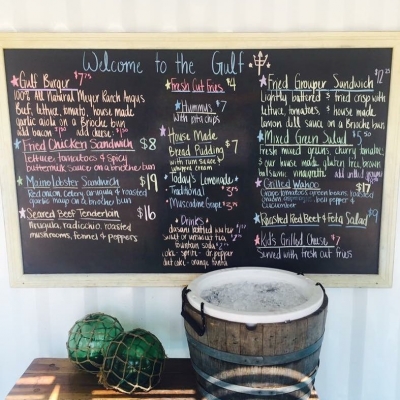 Welcome to the Gulf
Gulf Burger $7.75
100% All Natural Meyer Ranch Angus
Beef, lettuce, tomato, house made
garlic aioli on a Brioche Bun
add bacon $1.50 add cheese $.50
Fried Chicken Sandwich $8
lettuce tomatoes & spicy
buttermilk sauce on a brioche bun
Maine Lobster Sandwich $19
Red onion, celery, & roasted
garlic mayo on a brioche bun
Seared Beef Tenderloin $16
Arugula, radicchio, roasted
mushrooms, fennel & peppers
Fresh Cut Fries $4
Hummus $7
with pita chips
House Made
Bread Pudding $7
with rum sauce &
whipped cream
Today's Lemonade
Traditional $3
Muscadine Grape $3
Drinks
dasani bottled water $1
sweet or unsweet tea
fountain soda $2
coke - sprite - dr. pepper
diet coke - orange fanta
Fried Grouper Sandwich $12
Lightly battered & fried crisp with
lettuce, tomatoes, & house made
lemon dill sauce on a Brioche bun
Mixed Green Salad $5.50
Fresh mixed greens, cherry tomatoes
& our house made gluten free brown
balsamic vinaigrette
Grilled Wahoo $17
tomatoes, green beans, roasted
pepper &
cucumber
Roasted Red Beet & Feta Salad $9
Kids Grilled Cheese $7
Served with fresh cut fries